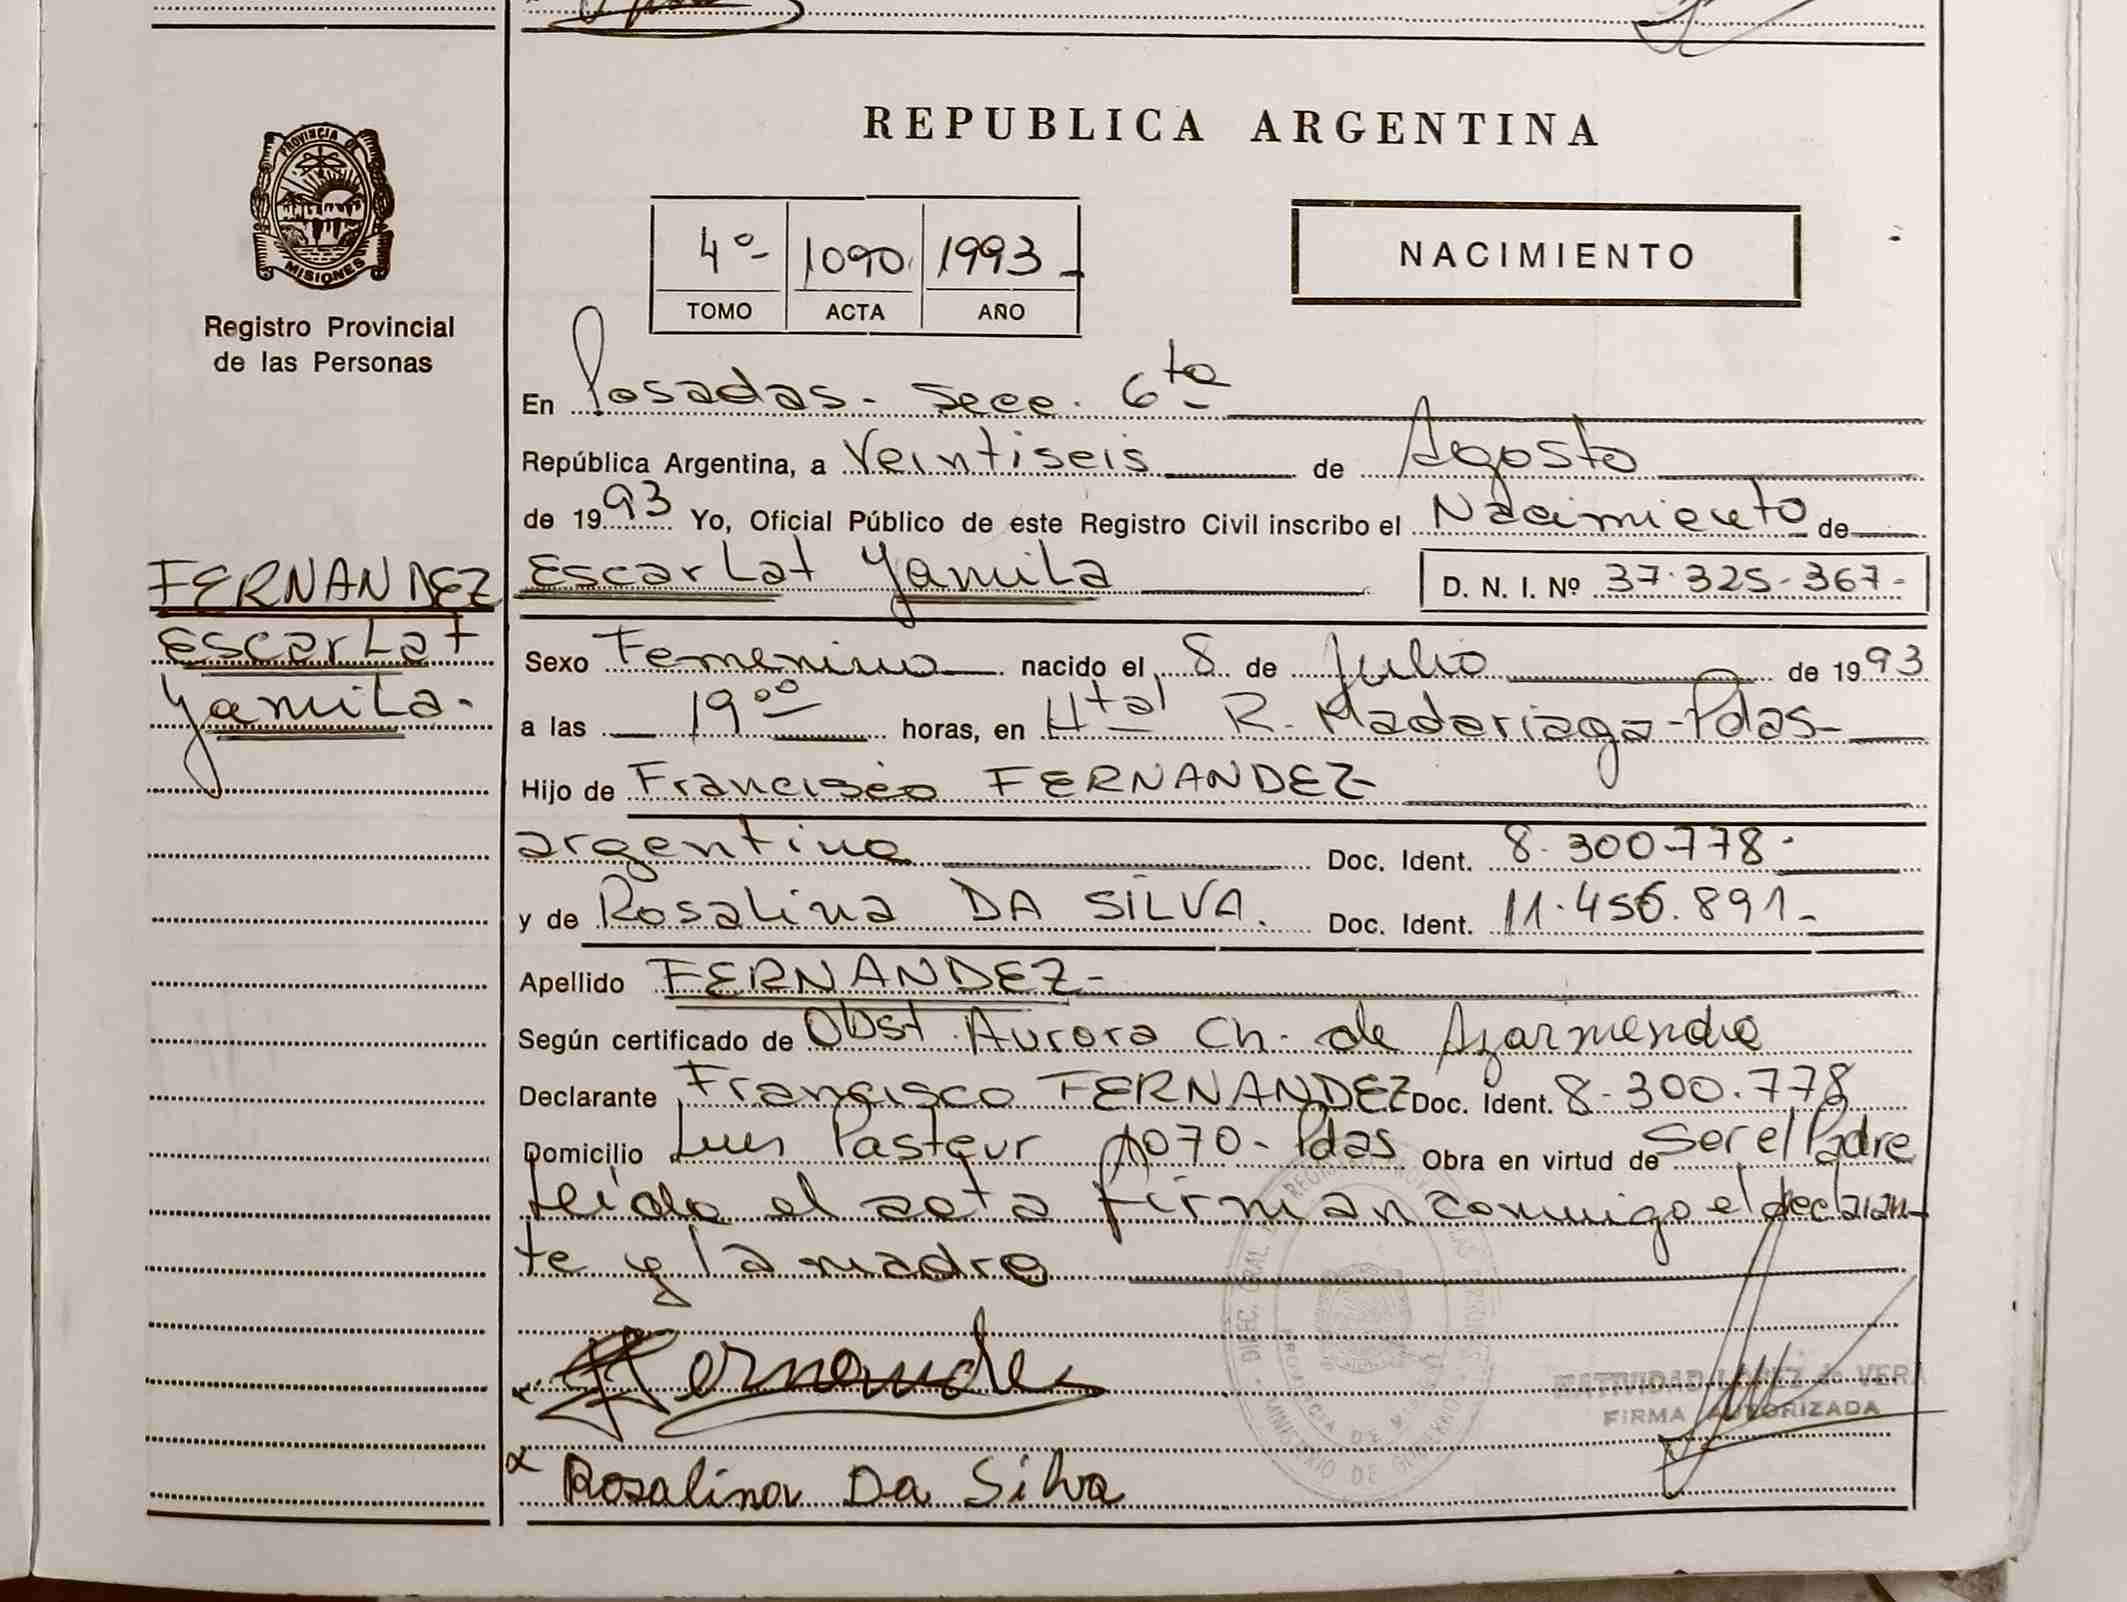 PROVINCIA DE
MISIONES
Registro Provincial
de las Personas
FERNANDEZ
Escarlat
Yamila.
REPUBLICA ARGENTINA
4º- 1090 1993
TOMO ACTA AÑO
NACIMIENTO
En Posadas - Secc. 6ta
República Argentina, a Veintiseis de Agosto
de 1993 Yo, Oficial Público de este Registro Civil inscribo el Nacimiento de
Escarlat Yamila D. N. I. Nº 37.325.367-
Sexo Femenino nacido el 8 de Julio de 1993
a las 19oo horas, en Htal R. Madariaga - Pdas-
Hijo de Francisco FERNANDEZ
argentino Doc. Ident. 8.300.778-
y de Rosalina DA SILVA. Doc. Ident. 11.456.891-
Apellido FERNANDEZ-
Según certificado de Obst. Aurora Ch. de Azarmendia
Declarante Francisco FERNANDEZ Doc. Ident. 8.300.778
Domicilio Luis Pasteur 1070 - Pdas Obra en virtud de Ser el Padre
leida el acta firman conmigo el declaran-
te y la madre
Fernandes
NATIVIDAD LOPEZ de VERA
FIRMA AUTORIZADA
Rosalina Da Silva